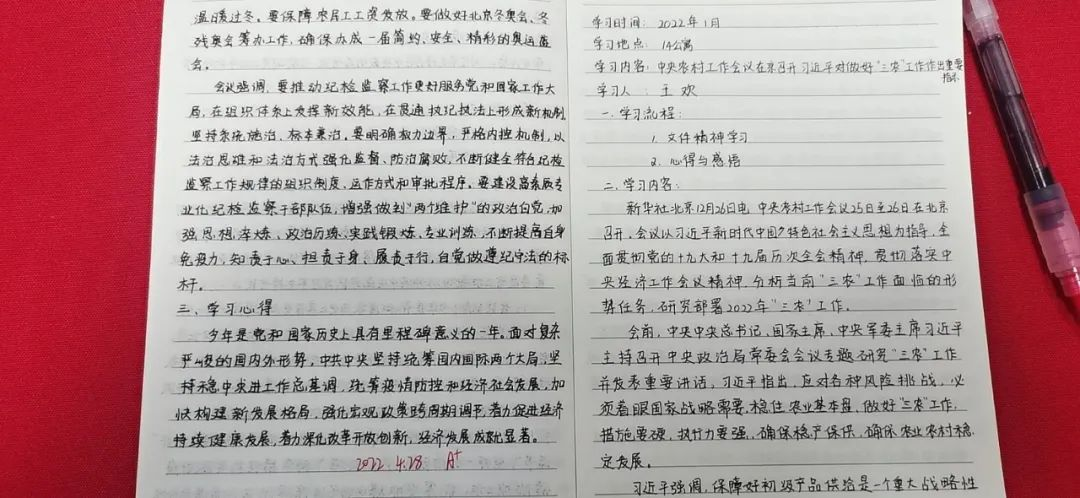 温暖过冬。要保障农民工工资发放。要做好北京冬奥会、冬
残奥会筹办工作,确保办成一届简约、安全、精彩的奥运盛
会。
会议强调,要推动纪检监察工作更好服务党和国家工作大
局,在组织体系上发挥新效能,在贯通执纪执法上形成新机制
坚持系统施治、标本兼治。要明确权力边界,严格内控机制,以
法治思维和法治方式强化监督、防治腐败,不断健全符合纪检
监察工作规律的组织制度、运作方式和审批程序。要建设高素质专
业化纪检监察干部队伍,增强做到"两个维护"的政治自觉,加
强思想淬炼、政治历练、实践锻炼、专业训练,不断提高自身
免疫力,知责于心、担责于身、履责于行,自觉做遵纪守法的标
杆。
三、学习心得
今年是党和国家历史上具有里程碑意义的一年。面对复杂
严峻的国内外形势,中共中央坚持统筹国内国际两个大局,坚
持稳中央进工作总基调,统筹疫情防控和经济社会发展,加
快构建新发展格局,强化宏观政策跨周期调节,着力促进经济
持续健康发展,着力深化改革开放创新,经济发展成就显著。
2022.4.28 A+
学习时间:2022年1月
学习地点:14公寓
学习内容:中央农村工作会议在京召开习近平对做好"三农"工作作出重要
指示
学习人:王欢
一、学习流程:
1. 文件精神学习
2. 心得与感悟
二、学习内容:
新华社北京12月26日电 中央农村工作会议25日至26日在北京
召开,会议以习近平新时代中国特色社会主义思想为指导,全
面贯彻党的十九大和十九届历次全会精神,贯彻落实中
央经济工作会议精神,分析当前"三农"工作面临的形
势任务,研究部署2022年"三农"工作。
会前,中央中央总书记、国家主席、中央军委主席习近平
主持召开中央政治局常委会会议专题研究"三农"工作
并发表重要讲话,习近平指出,应对各种风险挑战,必
须着眼国家战略需要,稳住农业基本盘、做好"三农"工作,
措施要硬,执行力要强,确保稳产保供,确保农业农村稳
定发展。
习近平强调,保障好初级产品供给是一个重大战略性